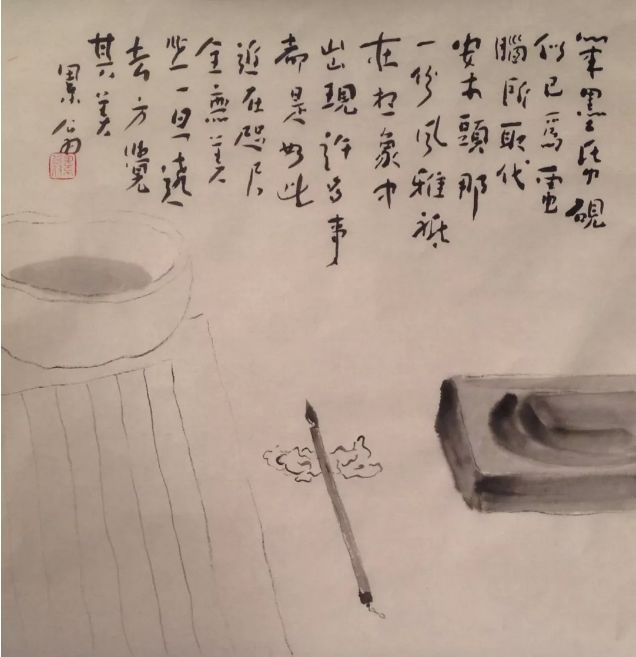 筆墨紙硯
似已為電
腦所取代
案木頭那
一份風雅祗
在想象中
出現許多事
都是如此
近在咫尺
全無美
些一旦遠
去方覺
其美
景翁